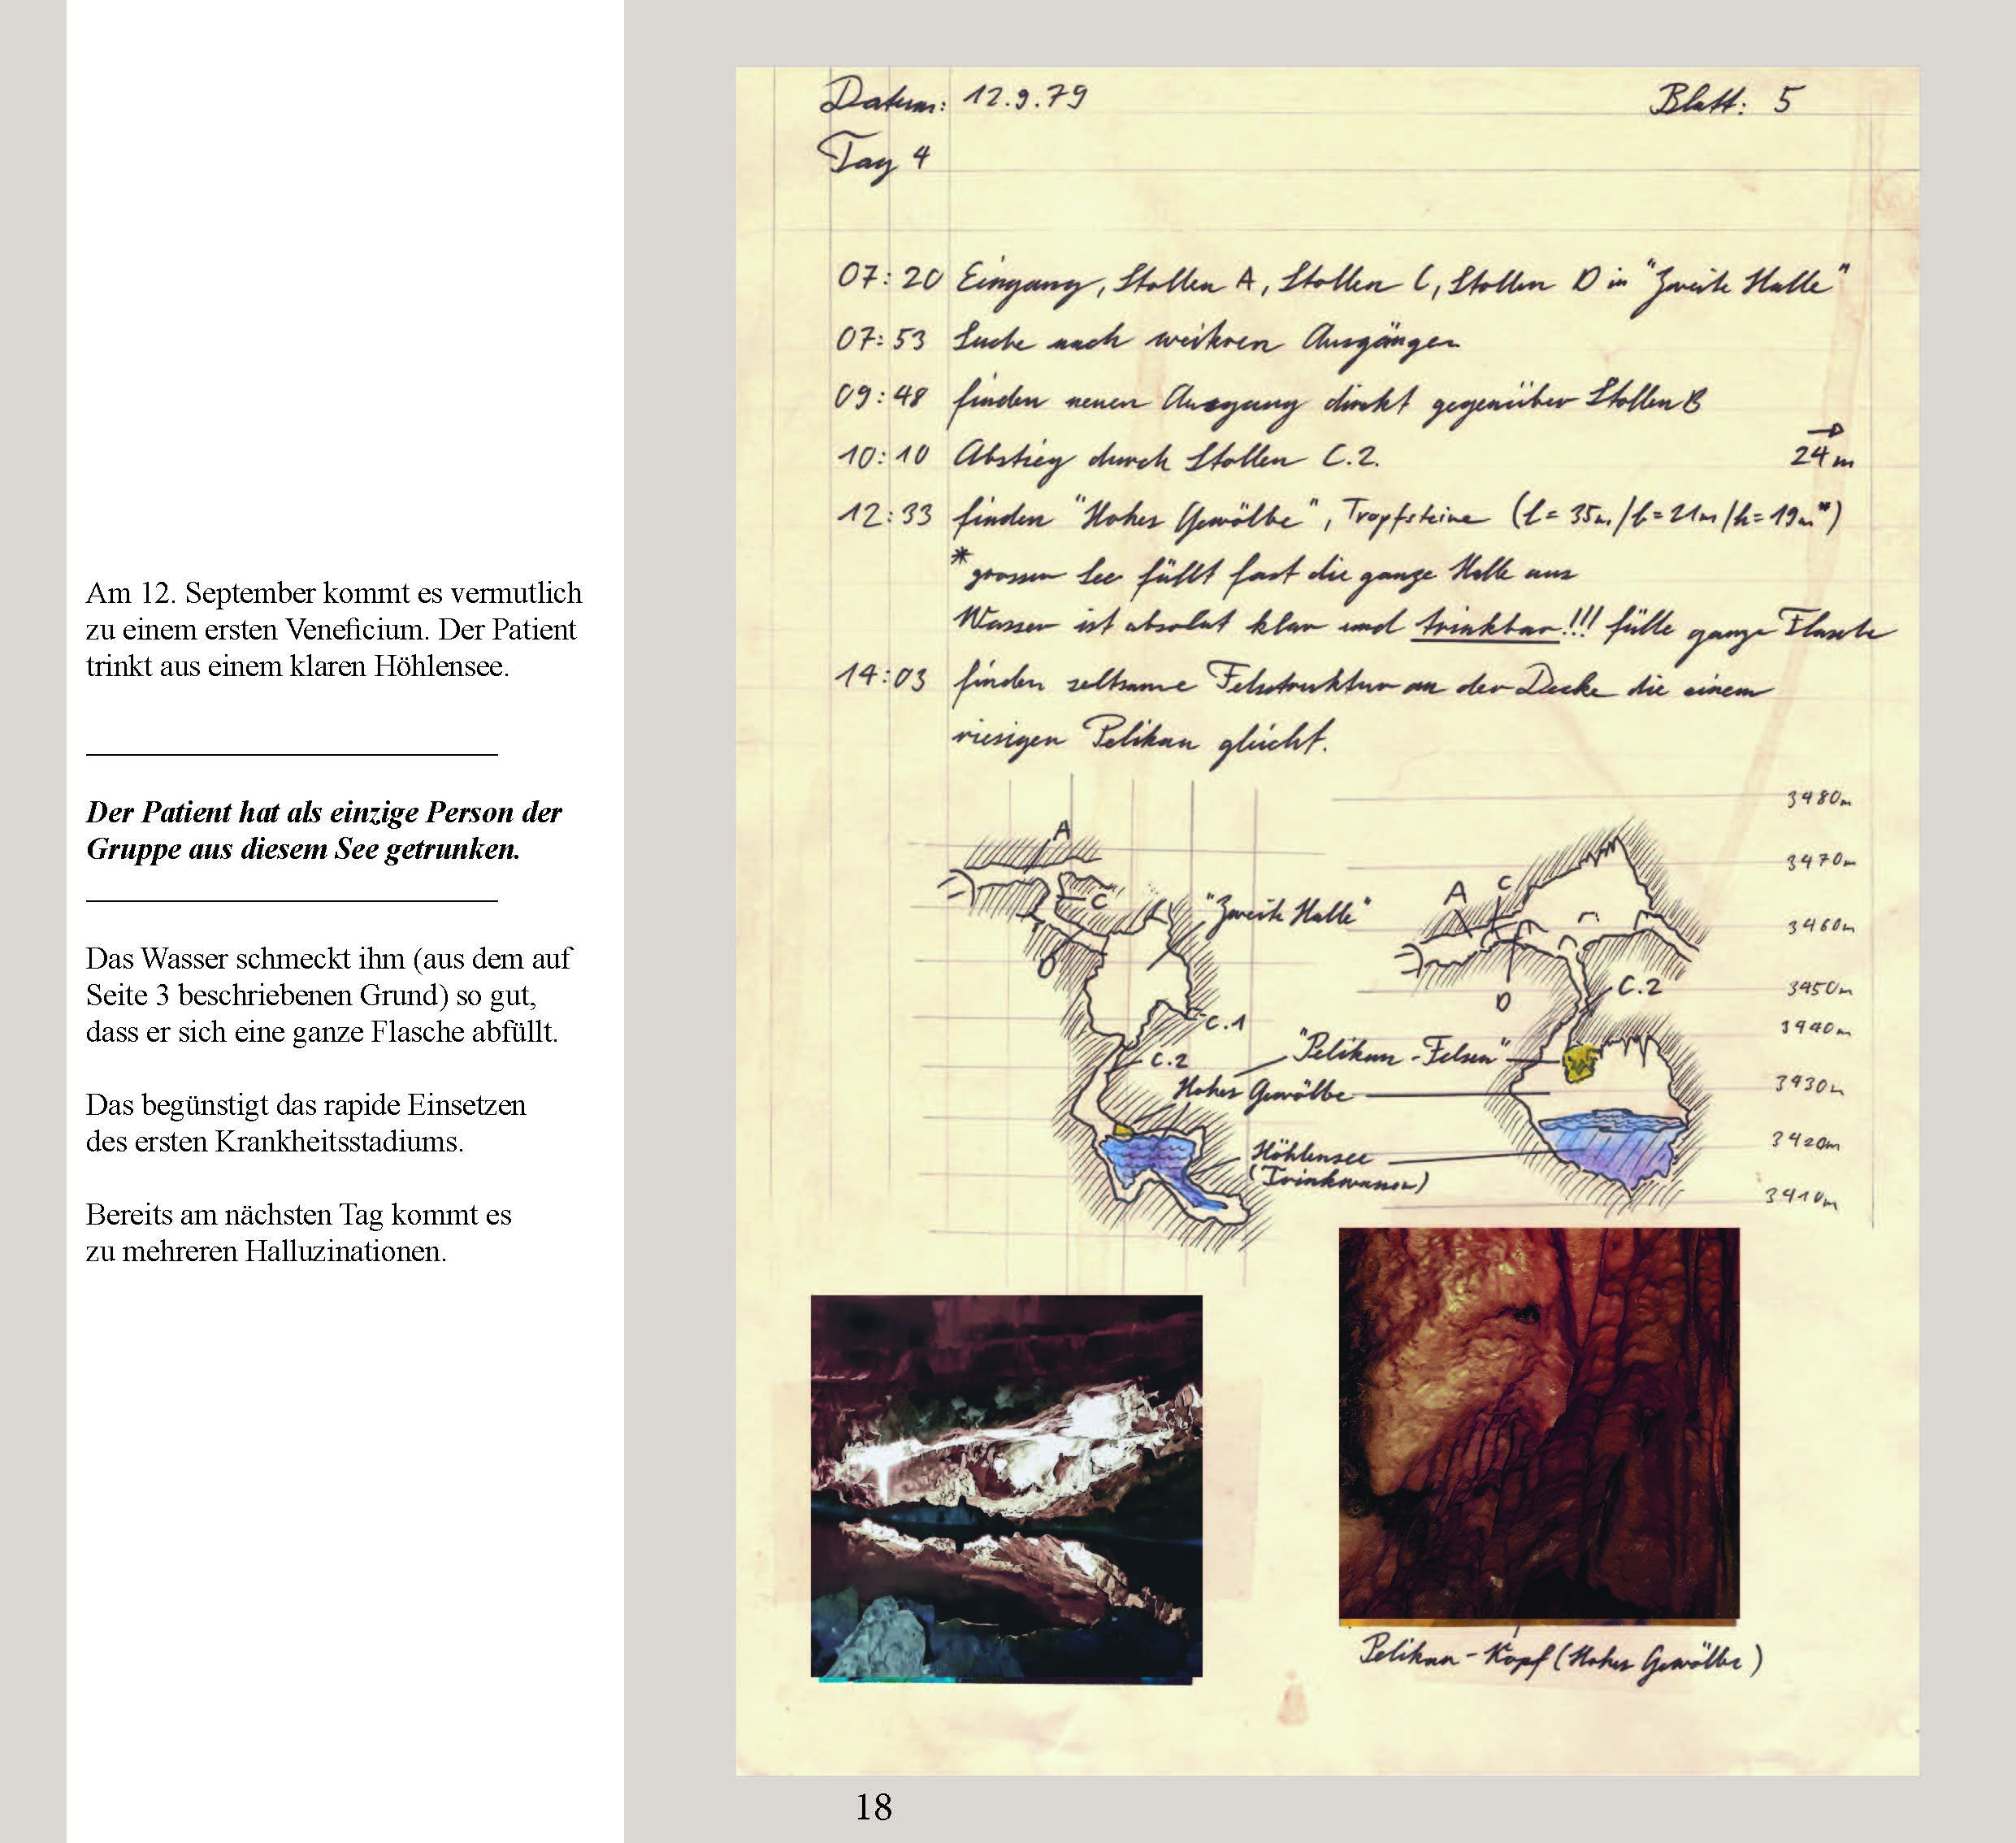 Am 12. September kommt es vermutlich
zu einem ersten Veneficium. Der Patient
trinkt aus einem klaren Höhlensee.
Der Patient hat als einzige Person der
Gruppe aus diesem See getrunken.
Das Wasser schmeckt ihm (aus dem auf
Seite 3 beschriebenen Grund) so gut,
dass er sich eine ganze Flasche abfüllt.
Das begünstigt das rapide Einsetzen
des ersten Krankheitsstadiums.
Bereits am nächsten Tag kommt es
zu mehreren Halluzinationen.
Datum: 12.9.79 Blatt: 5
Tag 4
07:20 Eingang, Stollen A, Stollen C, Stollen D in "Zweite Halle"
07:53 Suche nach weiteren Ausgängen
09:48 finden neuen Ausgang direkt gegenüber Stollen B
10:10 Abstieg durch Stollen C.2. → 24m
12:33 finden "Hohes Gewölbe", Tropfsteine (l=35m/b=21m/h=19m*)
*grosser See füllt fast die ganze Halle aus
Wasser ist absolut klar und trinkbar!!! fülle ganze Flasche
14:03 finden seltsame Felsstruktur an der Decke die einem
riesigen Pelikan gleicht.
3480m
3470m
3460m
3450m
3440m
3430m
3420m
3410m
A
C
D
"Zweite Halle"
C.1
C.2
A
C
D
C.2
"Pelikan-Felsen"
Hohes Gewölbe
Höhlensee
(Trinkwasser)
Pelikan-Kopf (Hohes Gewölbe)
18